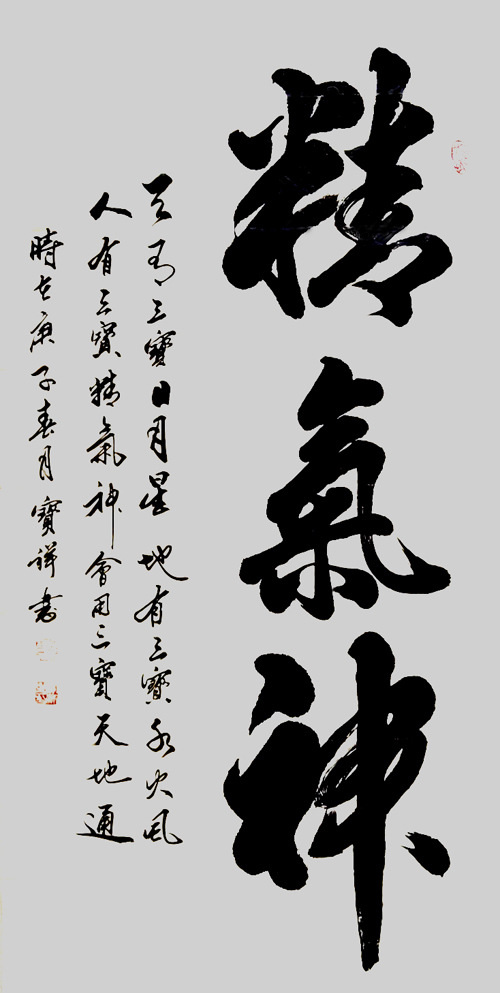 精氣神
天有三寶日月星地有三寶水火風
人有三寶精氣神會用三寶天地通
時在庚子春月寶祥書